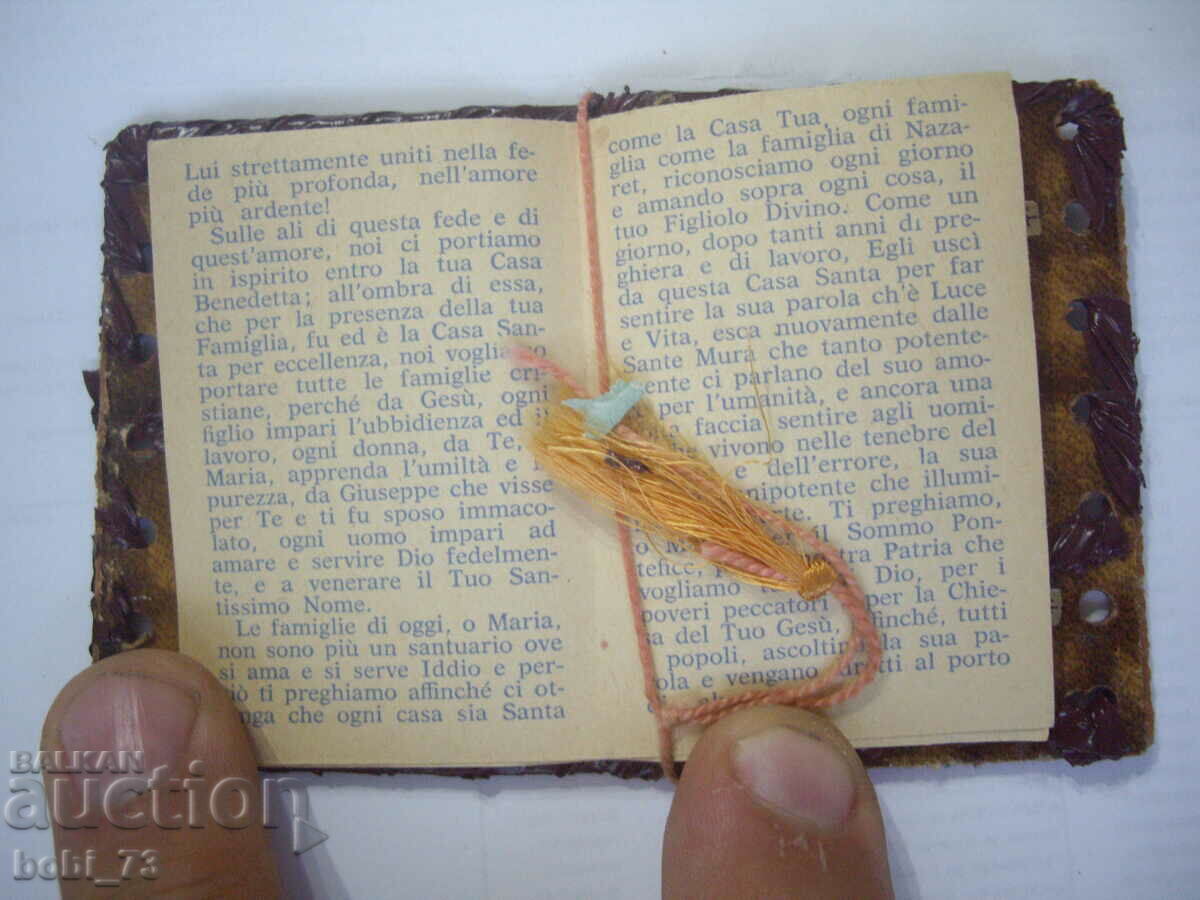 Lui strettamente uniti nella fe-
de più profonda, nell'amore
più ardente!
Sulle ali di questa fede e di
quest'amore, noi ci portiamo
in ispirito entro la tua Casa
Benedetta; all'ombra di essa,
che per la presenza della tua
Famiglia, fu ed è la Casa San-
ta per eccellenza, noi vogliamo
portare tutte le famiglie cri-
stiane, perché da Gesù, ogni
figlio impari l'ubbidienza ed il
lavoro, ogni donna, da Te, o
Maria, apprenda l'umiltà e
purezza, da Giuseppe che visse
per Te e ti fu sposo immaco-
lato, ogni uomo impari ad
amare e servire Dio fedelmen-
te, e a venerare il Tuo San-
tissimo Nome.
Le famiglie di oggi, o Maria,
non sono più un santuario ove
si ama e si serve Iddio e per-
ciò ti preghiamo affinché ci ot-
enga che ogni casa sia Santa
come la Casa Tua, ogni fami-
glia come la famiglia di Naza-
ret, riconosciamo ogni giorno
e amando sopra ogni cosa, il
tuo Figliolo Divino. Come un
giorno, dopo tanti anni di pre-
ghiera e di lavoro, Egli uscì
da questa Casa Santa per far
sentire la sua parola ch'è Luce
e Vita, esca nuovamente dalle
Sante Mura che tanto potente-
mente ci parlano del suo amo-
per l'umanità, e ancora una
faccia sentire agli uomi-
che vivono nelle tenebre del
e dell'errore, la sua
nipotente che illumi-
te. Ti preghiamo,
o il Sommo Pon-
tefice, tra Patria che
vogliamo Dio, per i
poveri peccatori per la Chie-
sa del Tuo Gesù, affinché, tutti
popoli, ascoltino la sua pa-
rola e vengano diretti al porto
BALKAN
auction
bobi_73